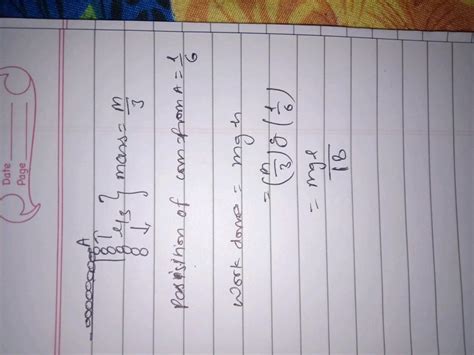 Date
Page
A
l/3 } mass = m/3
Position of com from A = 1/6
Work done = mgh
= (m/3) g (1/6)
= mgl/18